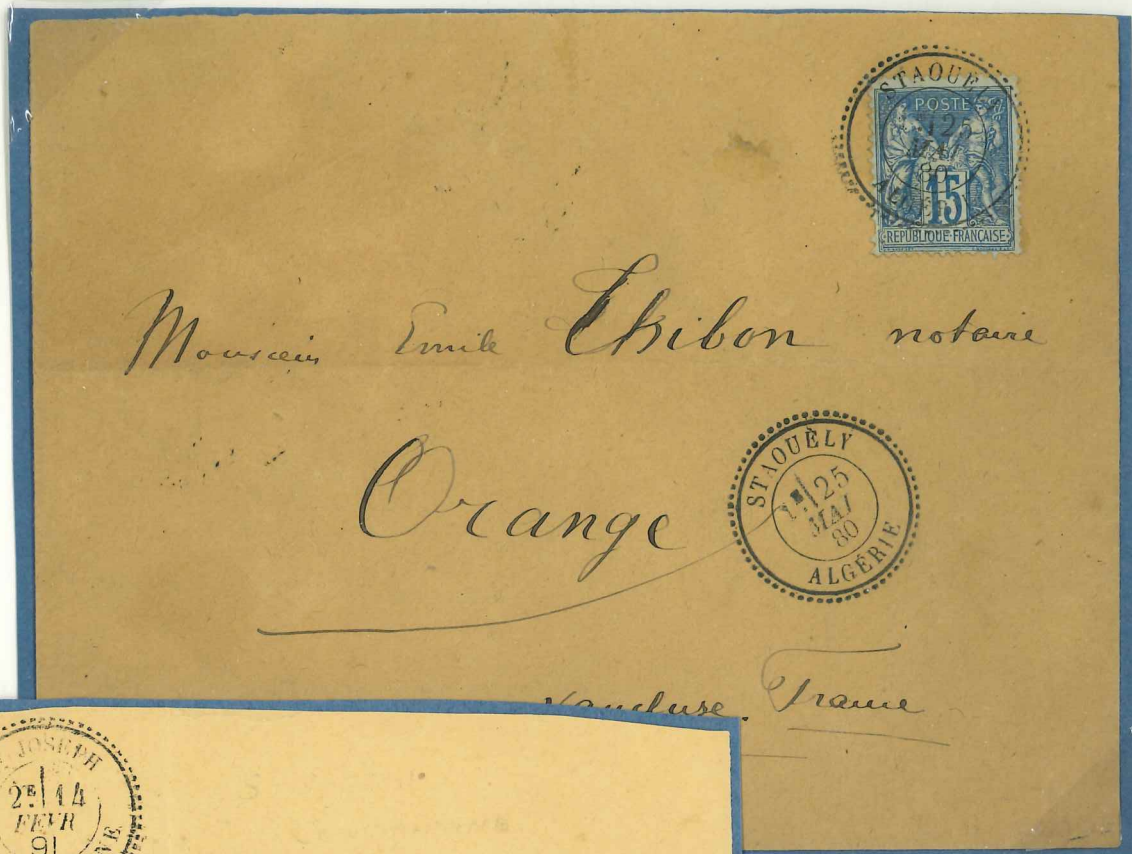 STAOUÈLY
POSTES
25
MAI
80
15
REPUBLIQUE FRANÇAISE
Monsieur Emile Thibon notaire
Orange
STAOUÈLY
1E 25
MAI
80
ALGÉRIE
Vaucluse. France
JOSEPH
2E 14
FEVR
91